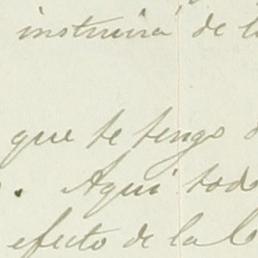 instruirá de l
que te tengo
. Aquí tod
efecto de la